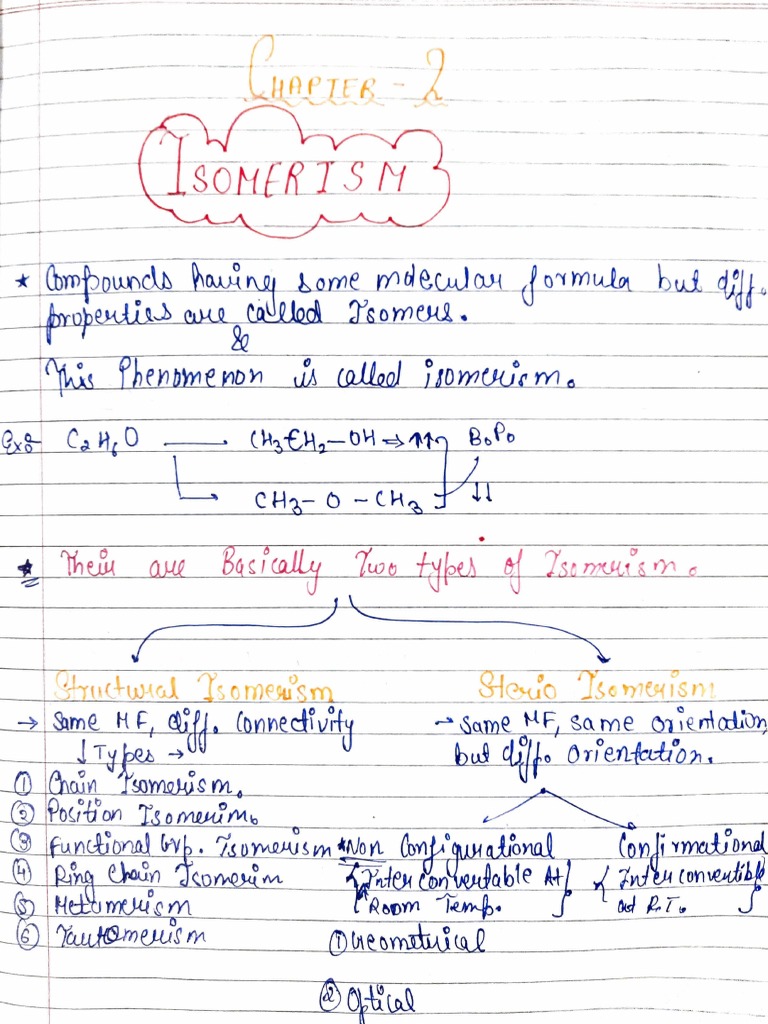 CHAPTER - 2
ISOMERISM
* Compounds having some molecular formula but diff.
properties are called Isomers.
&
This Phenomenon is called isomerism.
Ex:- C2H6O → CH3CH2-OH ⇒ ↑↑ B.P.
CH3-O-CH3 ↓↓
* Their are Basically Two types of Isomerism.
Structural Isomerism
→ Same MF, diff. Connectivity
↓ Types →
① Chain Isomerism.
② Position Isomerim.
③ Functional Grp. Isomerism
④ Ring Chain Isomerim
⑤ Metamerism
⑥ Tautomerism
Sterio Isomerism
→ Same MF, same orientation
but diff. orientation.
Configurational
*Non
{Inter convertable At
Room Temp.}
① Geometrical
② Optical
Confirmational
{Inter convertible
at R.T.}